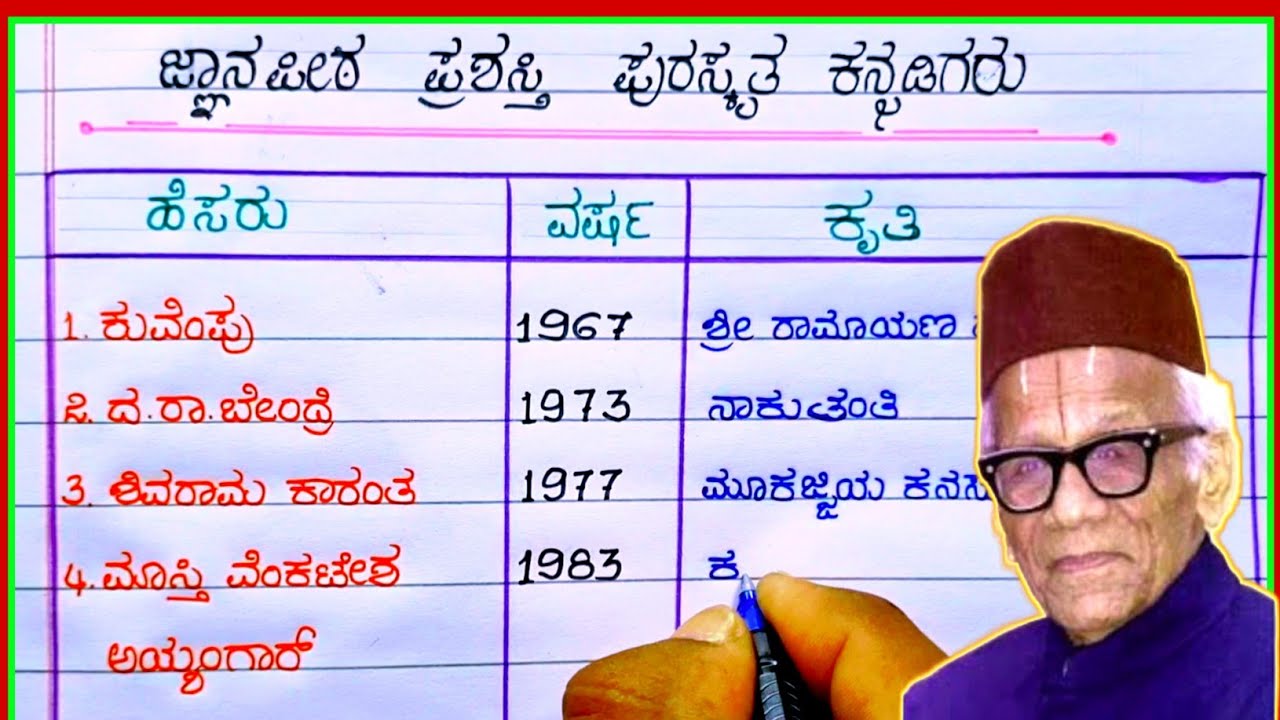 ಜ್ಞಾನಪೀಠ ಪ್ರಶಸ್ತಿ ಪುರಸ್ಕೃತ ಕನ್ನಡಿಗರು
ಹೆಸರು ವರ್ಷ ಕೃತಿ
1. ಕುವೆಂಪು 1967 ಶ್ರೀ ರಾಮಾಯಣ
2. ದ.ರಾ.ಬೇಂದ್ರೆ 1973 ನಾಕುತಂತಿ
3. ಶಿವರಾಮ ಕಾರಂತ 1977 ಮೂಕಜ್ಜಿಯ
4. ಮಾಸ್ತಿ ವೆಂಕಟೇಶ 1983 ಕ
ಅಯ್ಯಂಗಾರ್